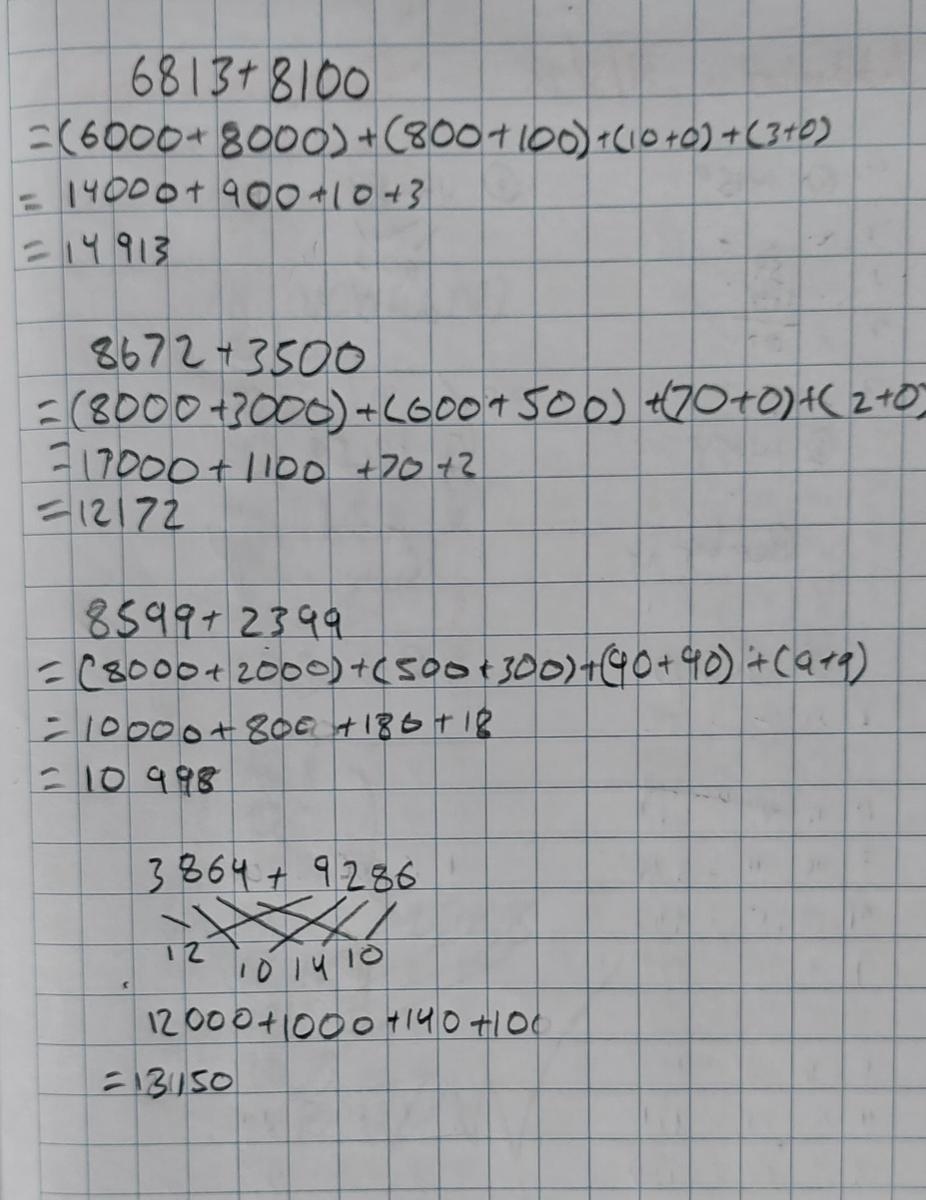 6813+8100
=(6000+8000)+(800+100)+(10+0)+(3+0)
=14000+900+10+3
=14913
8672+3500
=(8000+3000)+(600+500)+(70+0)+(2+0)
=17000+1100+70+2
=12172
8599+2399
=(8000+2000)+(500+300)+(90+90)+(9+9)
=10000+800+180+18
=10998
3864+9286
12 10 14 10
12000+1000+140+10
=13150